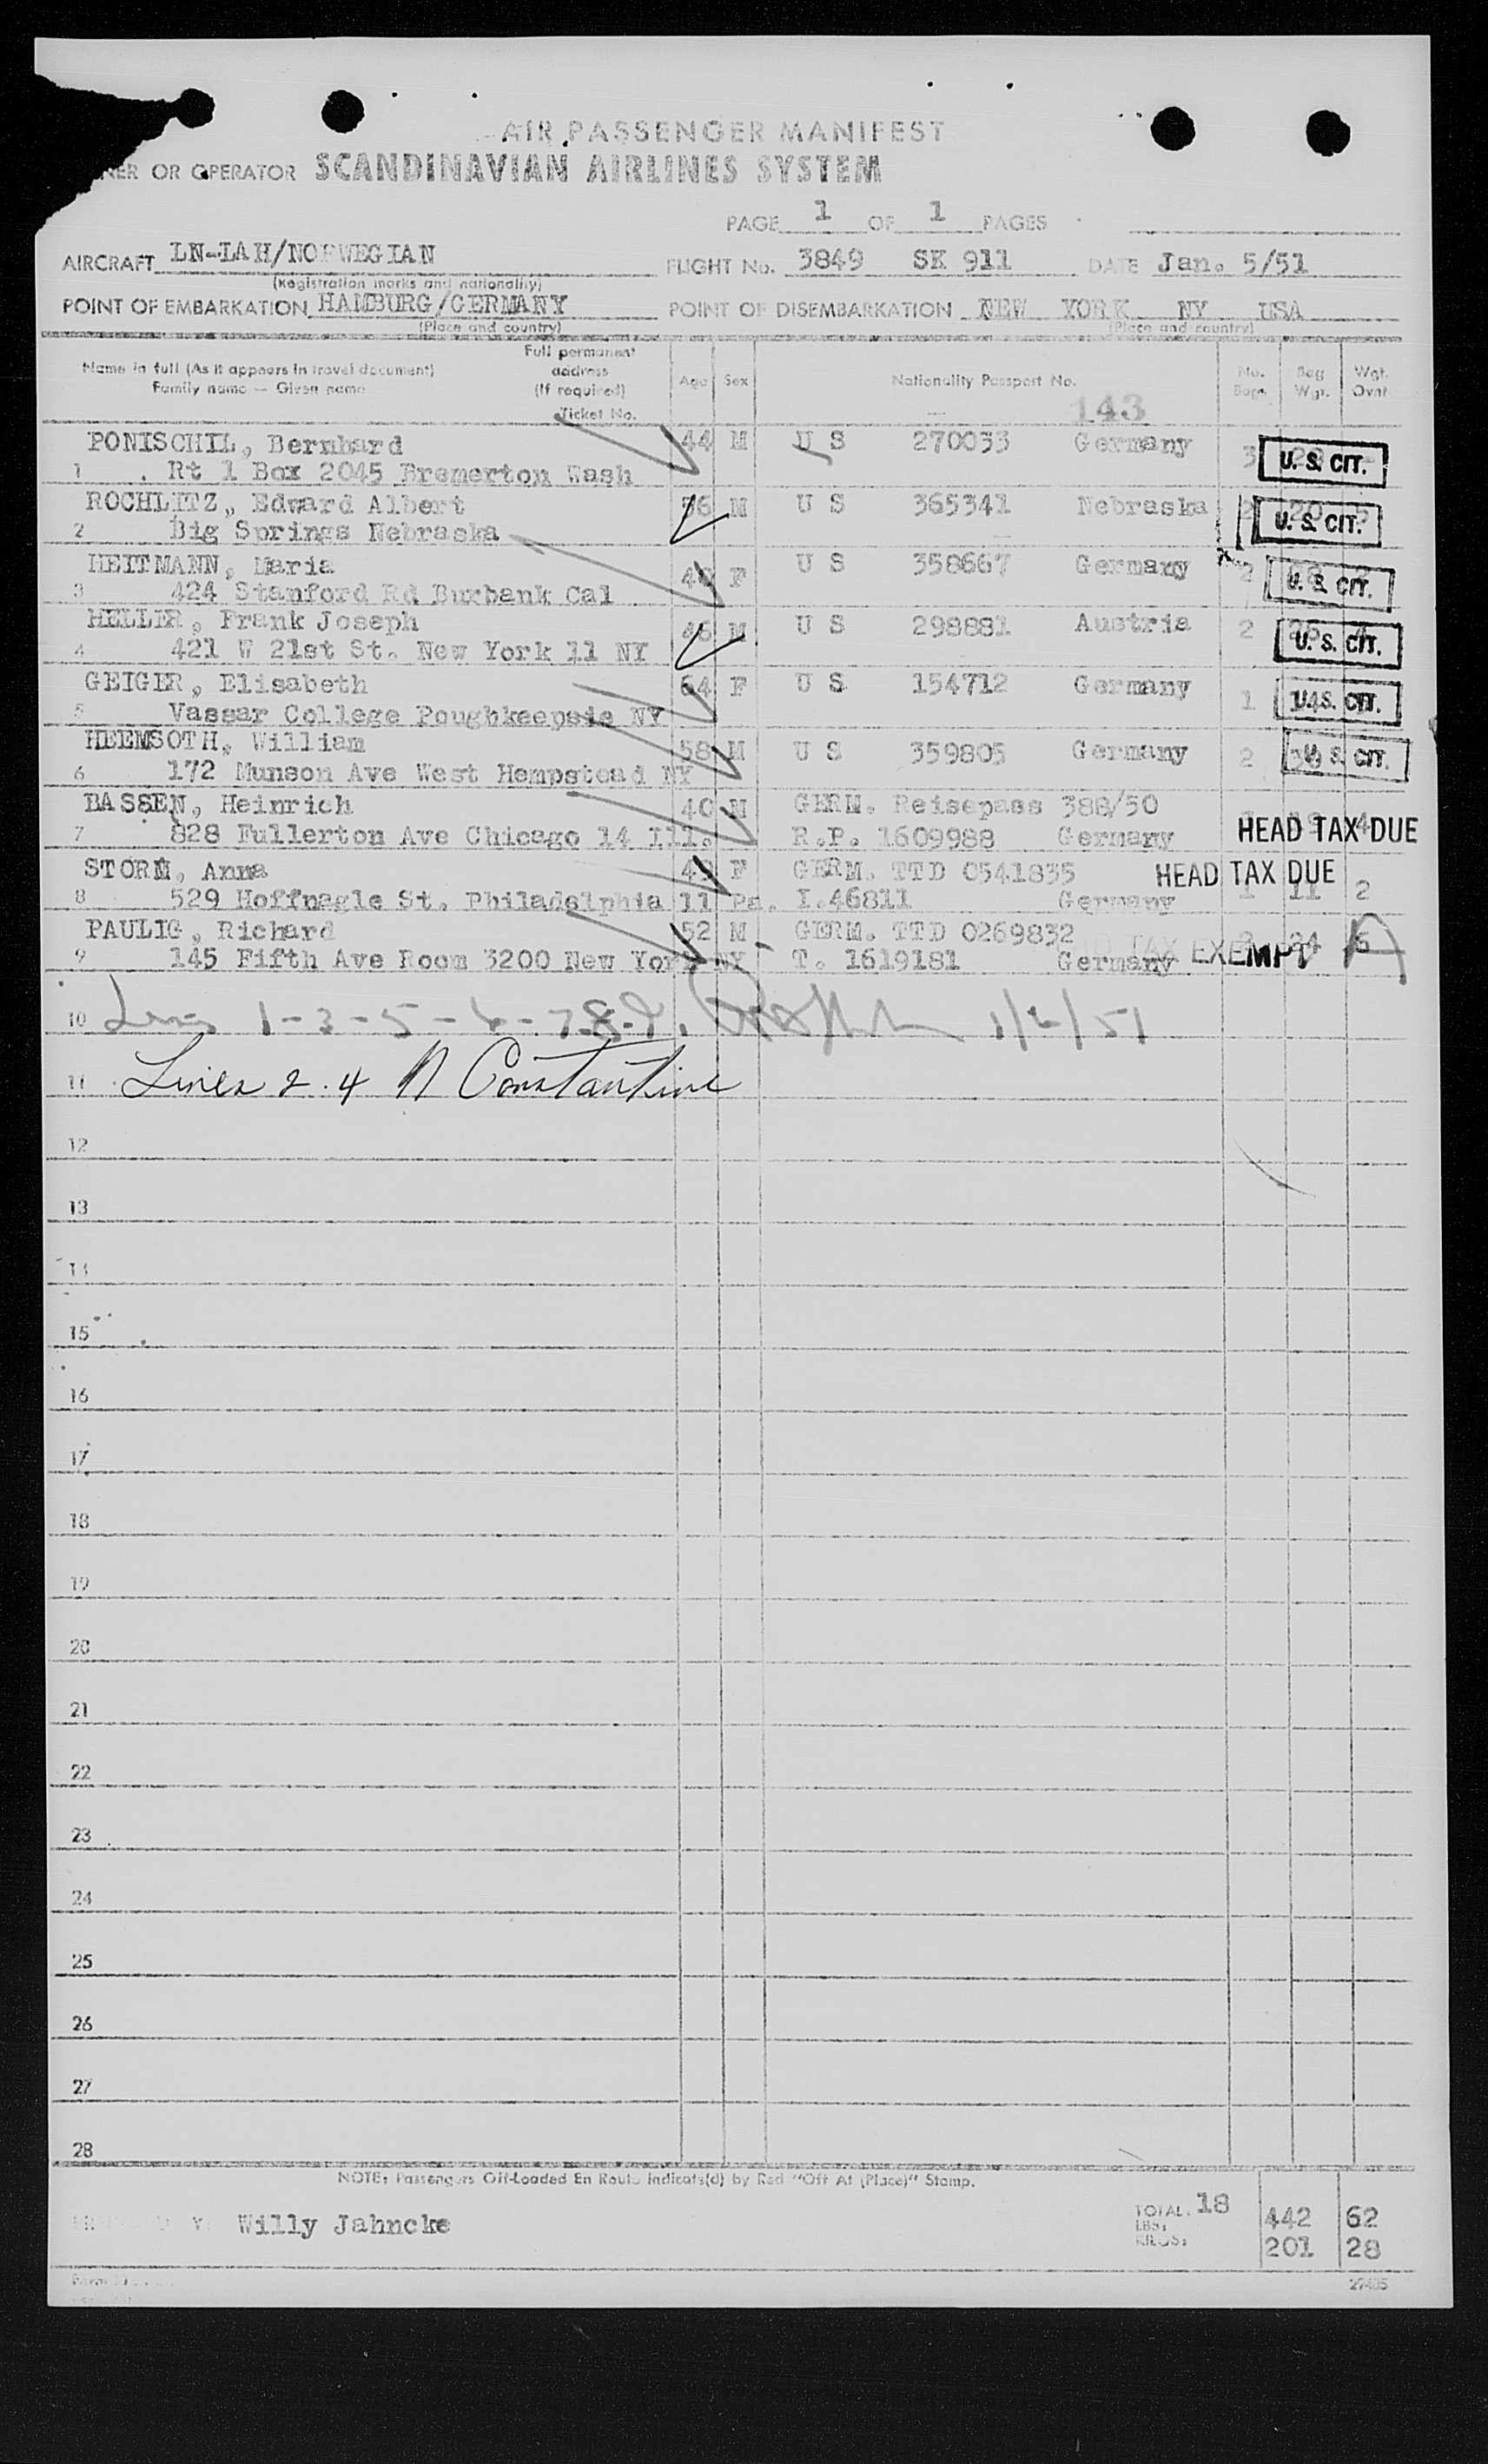 AIR PASSENGER MANIFEST
OR OPERATOR SCANDINAVIAN AIRLINES SYSTEM
PAGE 1 OF 1 PAGES
AIRCRAFT LN-LAH/NORWEGIAN FLIGHT No. 3849 SK 911 DATE Jan. 5/51
(Registration marks and nationality)
POINT OF EMBARKATION HAMBURG/GERMANY POINT OF DISEMBARKATION NEW YORK NY USA
(Place and country) (Place and country)
Name in full (As it appears in travel document) Family name — Given name Full permanent address (If required) Ticket No. Age Sex Nationality Passport No. No. Bags Bag Wgt. Wgt. Ovnt
143
PONISCHIL, Bernhard 44 M U S 270033 Germany 3 U. S. CIT.
1 Rt 1 Box 2045 Bremerton Wash
ROCHLITZ, Edward Albert M U S 365341 Nebraska 2 20 U. S. CIT.
2 Big Springs Nebraska
HEITMANN, Maria F U S 358667 Germany 2 U. S. CIT.
3 424 Stanford Rd Burbank Cal
HELLER, Frank Joseph 46 M U S 298881 Austria 2 U. S. CIT.
4 421 W 21st St. New York 11 NY
GEIGER, Elisabeth 64 F U S 154712 Germany 1 U. S. CIT.
5 Vassar College Poughkeepsie NY
HEEMSOTH, William 58 M U S 359805 Germany 2 U. S. CIT.
6 172 Munson Ave West Hempstead NY
BASSEN, Heinrich 40 M GERM. Reisepass 38B/50
7 828 Fullerton Ave Chicago 14 Ill. R.P. 1609988 Germany HEAD TAX DUE 4
STORM, Anna F GERM. TTD 0541835 HEAD TAX DUE
8 529 Hoffnagle St. Philadelphia 11 Pa. I.46811 Germany 1 11 2
PAULIG, Richard 52 M GERM. TTD 0269832 24 6
9 145 Fifth Ave Room 3200 New York NY T. 1619181 Germany TAX EXEMPT
10 Lines 1-3-5-6-7-8-9. 1/6/51
11 Lines 2. 4 N Constantine
12
13
14
15
16
17
18
19
20
21
22
23
24
25
26
27
28
NOTE: Passengers Off-Loaded En Route Indicate(d) by Red "Off At (Place)" Stamp.
Willy Jahncke TOTAL. 18
LBS. 442 62
KILOS. 201 28
27405